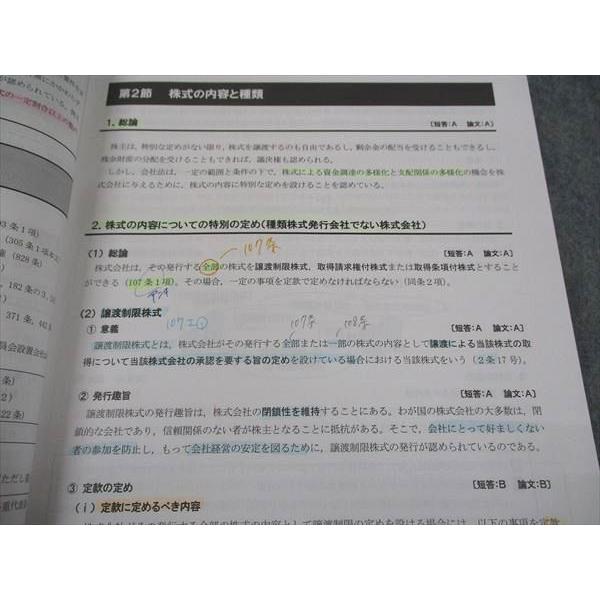 第2節 株式の内容と種類
1. 総論 [短答:A 論文:A]
株主は、特別な定めがない限り、株式を譲渡するのも自由であるし、剰余金の配当を受けることもできるし、
残余財産の分配を受けることもできれば、議決権も認められる。
しかし、会社法は、一定の範囲と条件の下で、株式による資金調達の多様化と支配関係の多様化の機会を株
式会社に与えるために、株式の内容に特別な定めを設けることを認めている。
2. 株式の内容についての特別の定め(種類株式発行会社でない株式会社)
107条
(1) 総論 [短答:A 論文:A]
株式会社は、その発行する全部の株式を譲渡制限株式、取得請求権付株式または取得条項付株式とすること
ができる(107条1項)。その場合、一定の事項を定款で定めなければならない(同条2項)。
(2) 譲渡制限株式
107 107条 108条
① 意義 [短答:A 論文:A]
譲渡制限株式とは、株式会社がその発行する全部または一部の株式の内容として譲渡による当該株式の取
得について当該株式会社の承認を要する旨の定めを設けている場合における当該株式をいう(2条17号)。
② 発行趣旨 [短答:A 論文:A]
譲渡制限株式の発行趣旨は、株式会社の閉鎖性を維持することにある。わが国の株式会社の大多数は、閉
鎖的な会社であり、信頼関係のない者が株主となることに抵抗がある。そこで、会社にとって好ましくない
者の参加を防止し、もって会社経営の安定を図るために、譲渡制限株式の発行が認められているのである。
③ 定款の定め [短答:B 論文:B]
(ⅰ) 定款に定めるべき内容
が認められている。
93条1項)
(305条1項
(828条
182条の3,
371条, 44
員会設置会社
条)
2条)
22条)
ただし
重代表